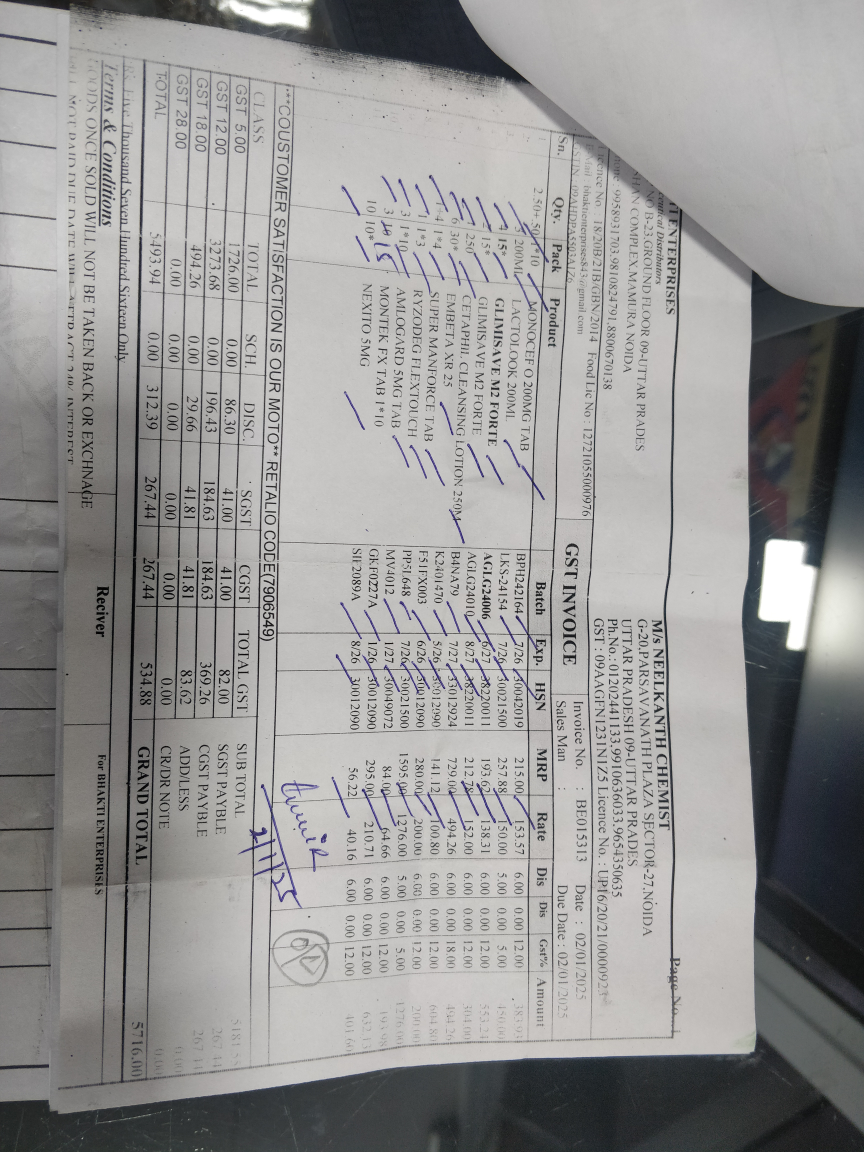 ENTERPRISES
Distributors
NO B-23,GROUND FLOOR 09-UTTAR PRADES
COMPLEX,MAMURA NOIDA
9958931703,9810824791,8800670138
Licence No : 18/20B/21B/GBN/2014 Food Lic No : 12721055000976
E-Mail : bhaktienterprises843@gmail.com
Page No.
M/s NEELKANTH CHEMIST
G-20,PARSAVANATH PLAZA SECTOR-27,NOIDA
UTTAR PRADESH 09-UTTAR PRADES
Ph.No.: 01202441133,9910636033,9654350635
GST : 09AAGFN1231N1Z5 Licence No.: UP16/20/21/0000923
GST INVOICE
Invoice No. : BE015313 Date : 02/01/2025
Sales Man : Due Date : 02/01/2025
Sn. Qty. Pack Product Batch Exp. HSN MRP Rate Dis Dis Gst% Amount
2.50+.50 1*10 MONOCEF O 200MG TAB BPH242164 7/26 30042019 215.00 153.57 6.00 0.00 12.00 383.93
3 200ML LACTOLOOK 200ML LKS-24154 7/26 30021500 257.88 150.00 5.00 0.00 5.00 450.00
4 15* GLIMISAVE M2 FORTE AGLG24006 6/27 38220011 193.62 138.31 6.00 0.00 12.00 553.24
2 15* GLIMISAVE M2 FORTE AGLG24010 8/27 38220011 212.78 152.00 6.00 0.00 12.00 304.00
1 250 CETAPHIL CLEANSING LOTION 250M B4NA79 7/27 33012924 729.00 494.26 6.00 0.00 18.00 494.26
6 30* EMBETA XR 25 K2401470 5/26 30012990 141.12 100.80 6.00 0.00 12.00 604.80
1*4 SUPER MANFORCE TAB F51FX003 6/26 30012090 280.00 200.00 6.00 0.00 12.00 200.00
1 1*3 RYZODEG FLEXTOUCH PP5L648 7/26 30021500 1595.00 1276.00 5.00 0.00 5.00 1276.00
3 1*10 AMLOGARD 5MG TAB MV4012 1/27 30049072 84.00 64.66 6.00 0.00 12.00 193.98
3 15 MONTEK FX TAB 1*10 GKF0227A 1/26 30012090 295.00 210.71 6.00 0.00 12.00 632.13
10 10* NEXITO 5MG SIF2089A 8/26 30012090 56.22 40.16 6.00 0.00 12.00 401.60
2/1/25
**COUSTOMER SATISFACTION IS OUR MOTO** RETALIO CODE(7906549)
CLASS TOTAL SCH. DISC. SGST CGST TOTAL GST
GST 5.00 1726.00 0.00 86.30 41.00 41.00 82.00
GST 12.00 3273.68 0.00 196.43 184.63 184.63 369.26
GST 18.00 494.26 0.00 29.66 41.81 41.81 83.62
GST 28.00 0.00 0.00 0.00 0.00 0.00 0.00
TOTAL 5493.94 0.00 312.39 267.44 267.44 534.88
SUB TOTAL 5181.55
SGST PAYABLE 267.44
CGST PAYABLE 267.44
ADD/LESS 0.00
CR/DR NOTE 0.00
GRAND TOTAL 5716.00
Rs. Five Thousand Seven Hundred Sixteen Only
Terms & Conditions
GOODS ONCE SOLD WILL NOT BE TAKEN BACK OR EXCHNAGE
NOT PAID DUE DATE WILL ATTRACT 24% INTEREST
Reciver
For BHAKTI ENTERPRISES